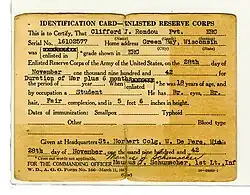 IDENTIFICATION CARD—ENLISTED RESERVE CORPS
This is to Certify, That Clifford F. Remdou Pvt. ERC
Serial No. 16102577 Home address Green Bay, Wisconsin
was enlisted in grade shown in ERC
Enlisted Reserve Corps of the Army of the United States, on the 28th day of
November one thousand nine hundred and 42 for
Duration of War plus 6 months
the period of year. When enlisted in he was 18 years of age, and
by occupation a Student He has Br. eyes, Br.
hair, Fair complexion, and is 5 feet 6 inches in height.
Dates of immunization: Smallpox Typhoid
Other
Given at Headquarters St. Norbert Colg, W. De Pere,
28th day of November, one thousand nine hundred and 42
FOR THE COMMANDING OFFICER: J. Schumacher, 1st Lt., Inf
W. D., A. G. O. Form No. 166